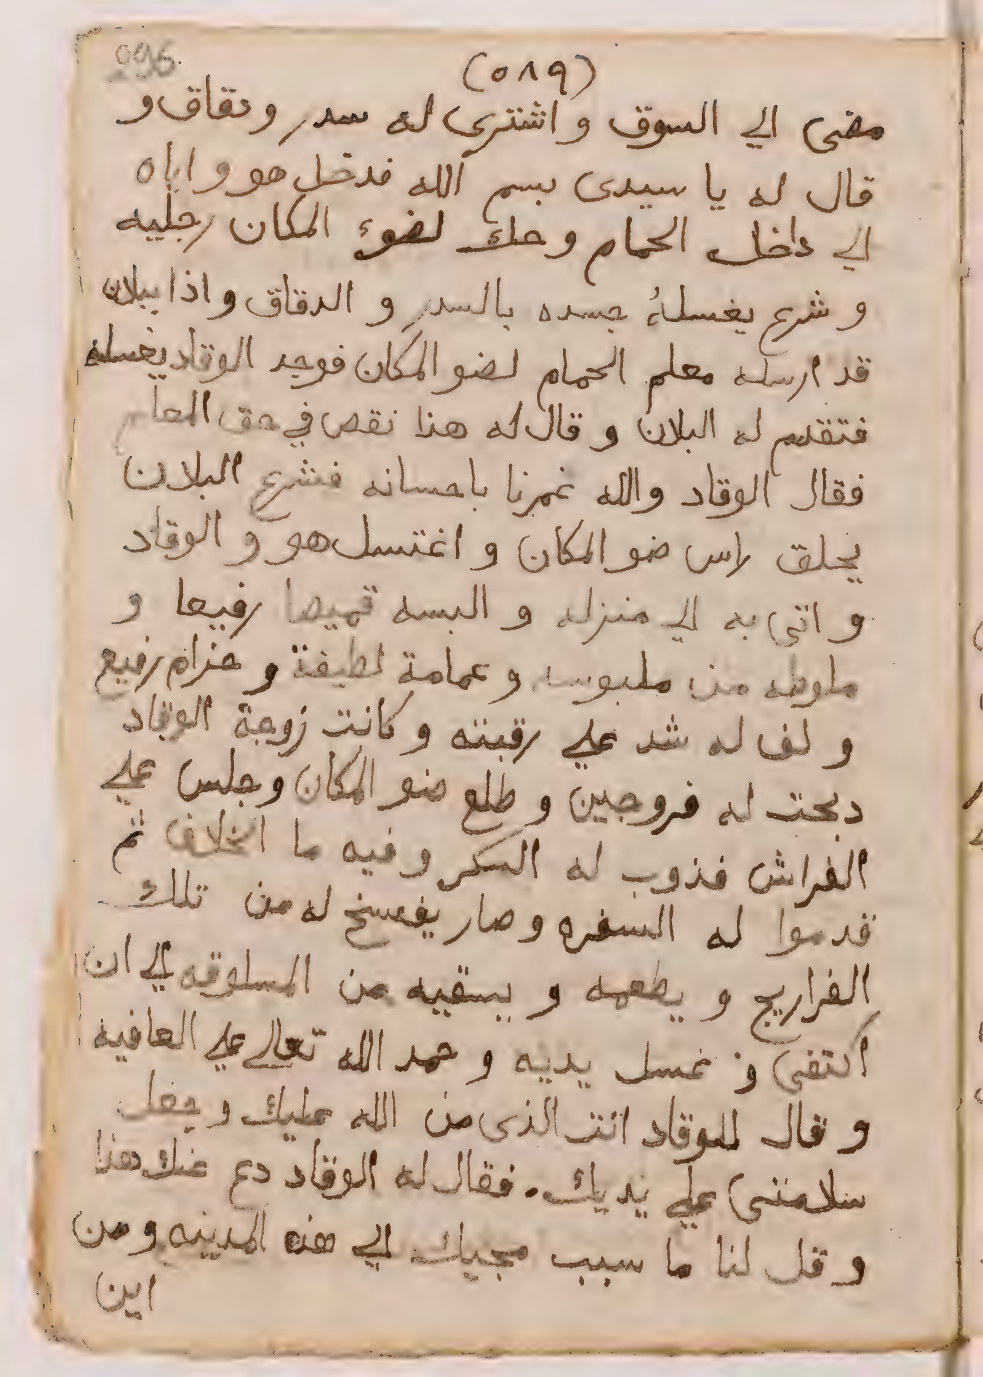 295
(٥٨٩)
مضى الي السوق و اشترى له سدر و دقاق و
قال له يا سيدى بسم الله فدخل هو و اياه
الي داخل الحمام و حك لضوء المكان رجليه
و شرع يغسلهُ جسده بالسدر و الدقاق و اذا ببلان
قد ارسله معلم الحمام لضو المكان فوجد الوقاد يغسله
فتقدم له البلان و قال له هذا نقص في حق المعلم
فقال الوقاد والله غمرنا باحسانه فشرع البلان
يحلق راس ضو المكان و اغتسل هو و الوقاد
و اتى به الي منزله و البسه قميصا رفيعا و
ملوطه من ملبوسه و عمامة لطيفة و حزام رفيع
و لف له شد علي رقبته و كانت زوجة الوقاد
دبحت له فروجين و طلع ضو المكان و جلس علي
الفراش فذوب له السكر و فيه ما الخلاف ثم
قدموا له السفره و صار يفسخ له من تلك
الفراريج و يطعمه و يسقيه من المسلوقه الي ان
اكتفى و غسل يديه و حمد الله تعالي علي العافيه
و قال للوقاد انت الذى من الله عليك و جعل
سلامتى علي يديك. فقال له الوقاد دع عنك هذا
و قل لنا ما سبب مجيك الي هذه المدينه و من
اين